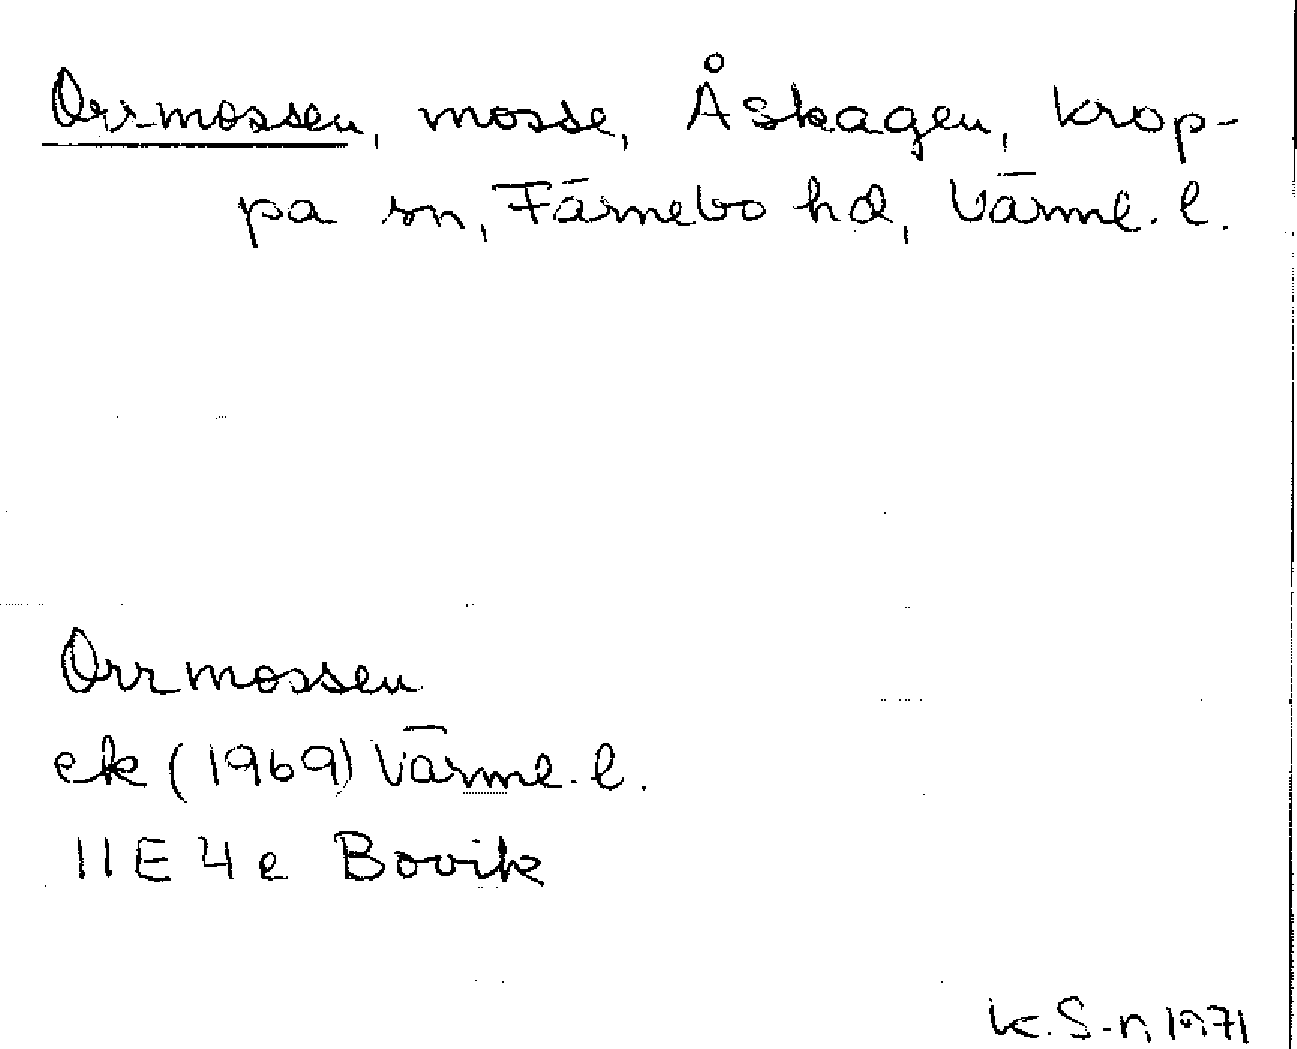 Orrmossen, mosse, Åskagen, Krop-
pa sn, Färnebo hd, Värml. l.
Orrmossen
ek (1969) Värml. l.
11E 4e Bovik
K. S-n, 1971